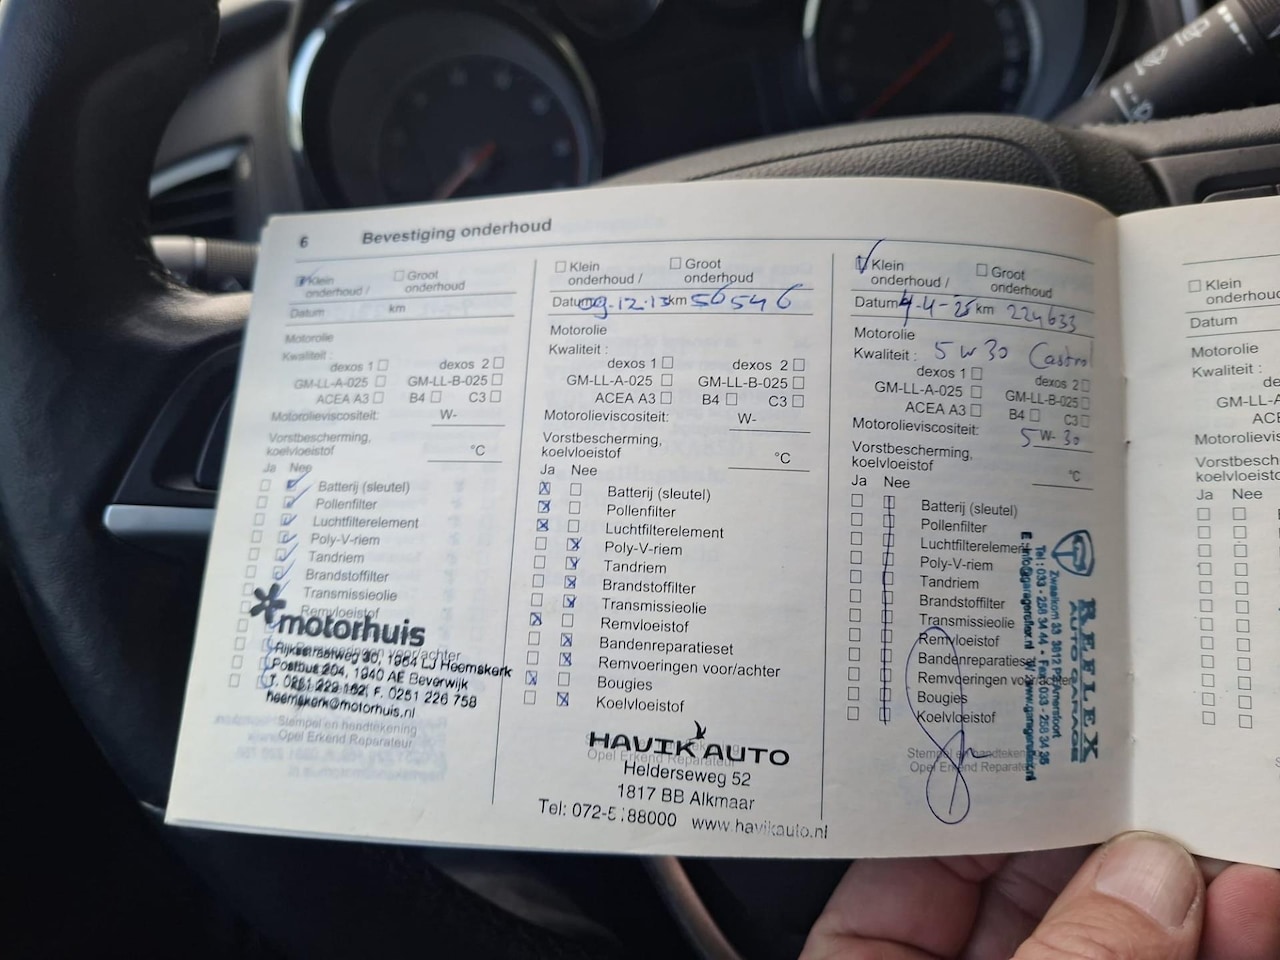 6
Bevestiging onderhoud
Klein
onderhoud /
Groot
onderhoud
Datum
km
Motorolie
Kwaliteit :
dexos 1
dexos 2
GM-LL-A-025
GM-LL-B-025
ACEA A3
B4
C3
Motorolieviscositeit:
W-
Vorstbescherming,
koelvloeistof
°C
Ja
Nee
Batterij (sleutel)
Pollenfilter
Luchtfilterelement
Poly-V-riem
Tandriem
Brandstoffilter
Transmissieolie
Remvloeistof
motorhuis
Rijksstraatweg 30, 1964 LJ Heemskerk
Postbus 204, 1940 AE Beverwijk
T. 0251 229 162, F. 0251 226 758
heemskerk@motorhuis.nl
Stempel en handtekening
Opel Erkend Reparateur
Klein
onderhoud /
Groot
onderhoud
Datum 09-12-13 km 56546
Motorolie
Kwaliteit :
dexos 1
dexos 2
GM-LL-A-025
GM-LL-B-025
ACEA A3
B4
C3
Motorolieviscositeit:
W-
Vorstbescherming,
koelvloeistof
°C
Ja
Nee
Batterij (sleutel)
Pollenfilter
Luchtfilterelement
Poly-V-riem
Tandriem
Brandstoffilter
Transmissieolie
Remvloeistof
Bandenreparatieset
Remvoeringen voor/achter
Bougies
Koelvloeistof
HAVIK AUTO
Opel Erkend Reparateur
Helderseweg 52
1817 BB Alkmaar
Tel: 072-5 188000 www.havikauto.nl
Klein
onderhoud /
Groot
onderhoud
Datum 4-4-25 km 224633
Motorolie
Kwaliteit : 5W30 Castrol
dexos 1
dexos 2
GM-LL-A-025
GM-LL-B-025
ACEA A3
B4
C3
Motorolieviscositeit:
5 W- 30
Vorstbescherming,
koelvloeistof
°C
Ja
Nee
Batterij (sleutel)
Pollenfilter
Luchtfilterelement
Poly-V-riem
Tandriem
Brandstoffilter
Transmissieolie
Remvloeistof
Bandenreparatieset
Remvoeringen voor/achter
Bougies
Koelvloeistof
Stempel en handtekening
Opel Erkend Reparateur
REFLEX
AUTO GARAGE
Tel : 033 - 258 34 44 • Fax : 033 - 258 34 35
Klein
onderhoud
Datum
Motorolie
Kwaliteit :
GM-LL-
Vorstbesch
koelvloeisto
Ja
Nee